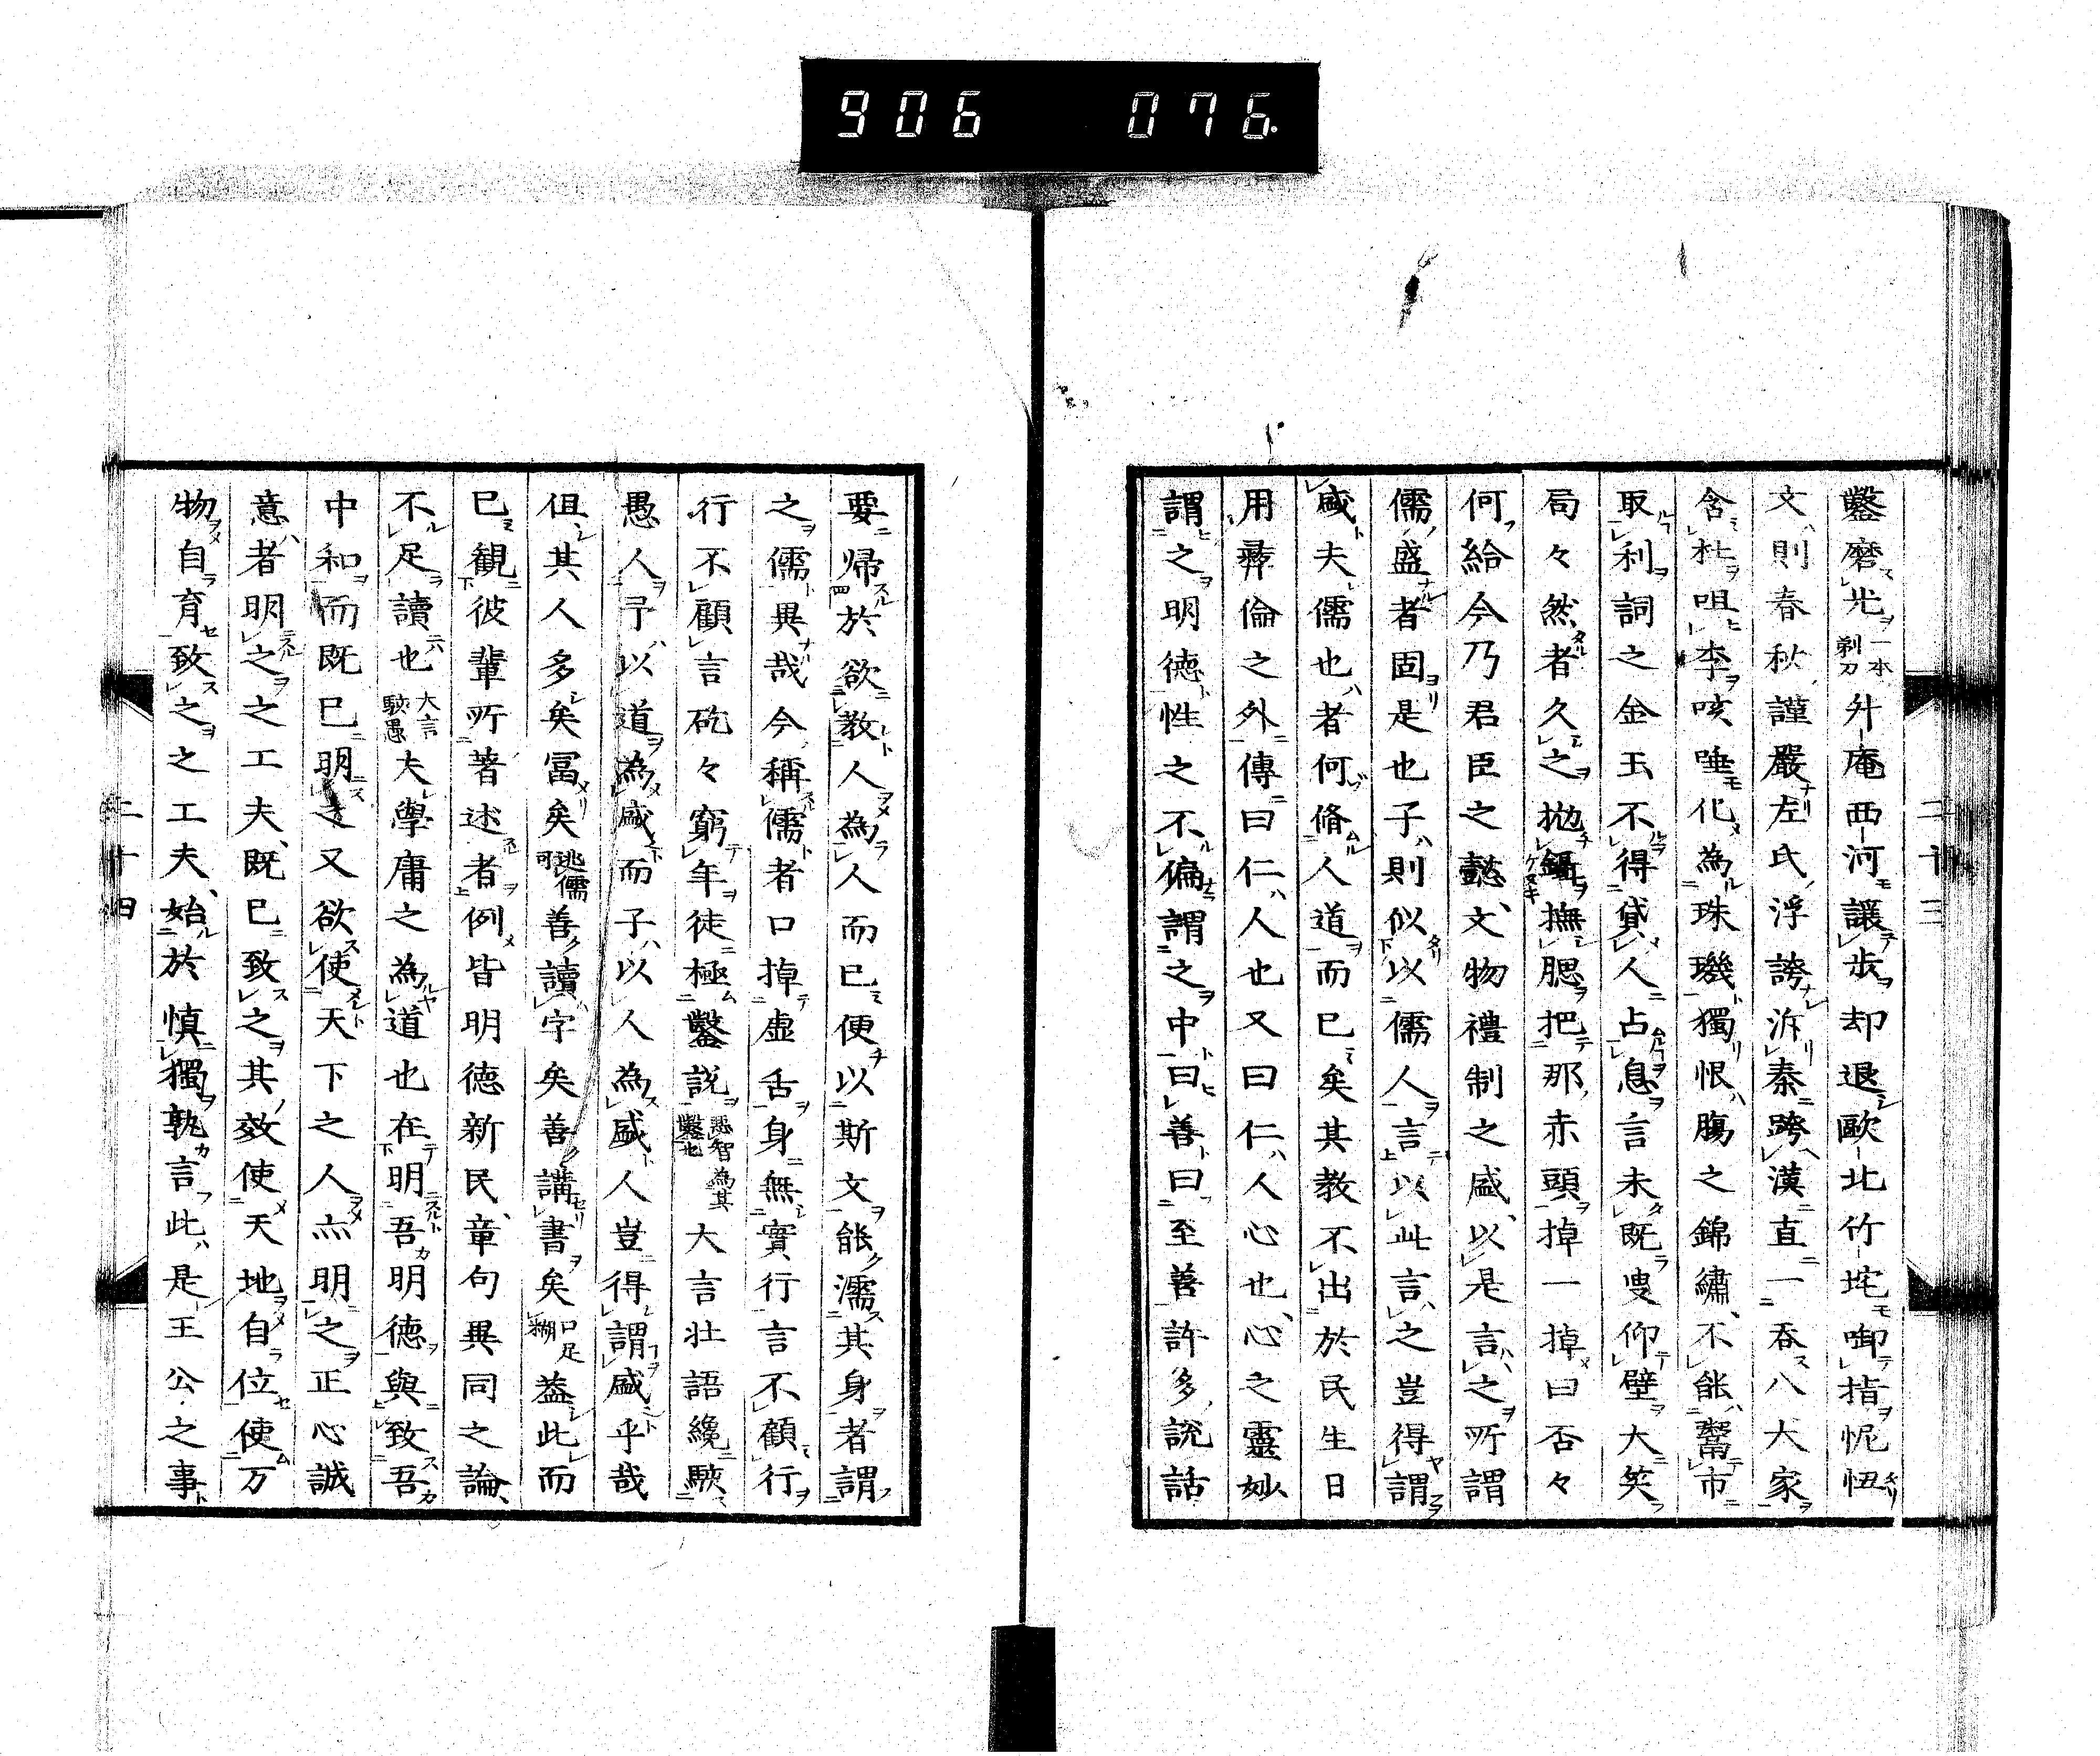 906 076
二十三
鑿磨光一本剃刀升庵西河讓歩却退歐北竹垞啣指忸怩
文則春秋謹嚴左氏浮誇泝秦跨漢直一吞八大家
含杜咀李咳唾化為珠璣獨恨膓之錦繡不能鬻市
取利詞之金玉不得貸人占息言未既叟仰壁大笑
局々然者久之拋鑷撫腮把那赤頭掉一掉曰否々
何給今乃君臣之懿文物禮制之盛以是言之所謂
儒盛者固是也子則似以儒人言以此言之豈得謂
盛夫儒也者何脩人道而已矣其教不出於民生日
用彝倫之外傳曰仁人也又曰仁人心也心之靈妙
謂之明德性之不偏謂之中曰善曰至善許多說話
要歸於欲教人為人而已便以斯文能濡其身者謂
之儒異哉今稱儒者口掉虛舌身無實行言不顧行
行不顧言矻々窮年徒極鑿說惡智為其鑿也大言壯語纔駭
愚人予以道為盛而子以人為盛人豈得謂盛乎哉
但其人多矣冨矣逃儒可善讀字矣善講書矣口足糊益此而
已觀彼輩所著述者例皆明德新民章句異同之論
不足讀也大言駭愚夫學庸之為道也在明吾明德與致吾
中和而既已明之又欲使天下之人亦明之正心誠
意者明之之工夫既已致之其效使天地自位使万
物自育致之之工夫始於慎獨孰言此是王公之事
二十四